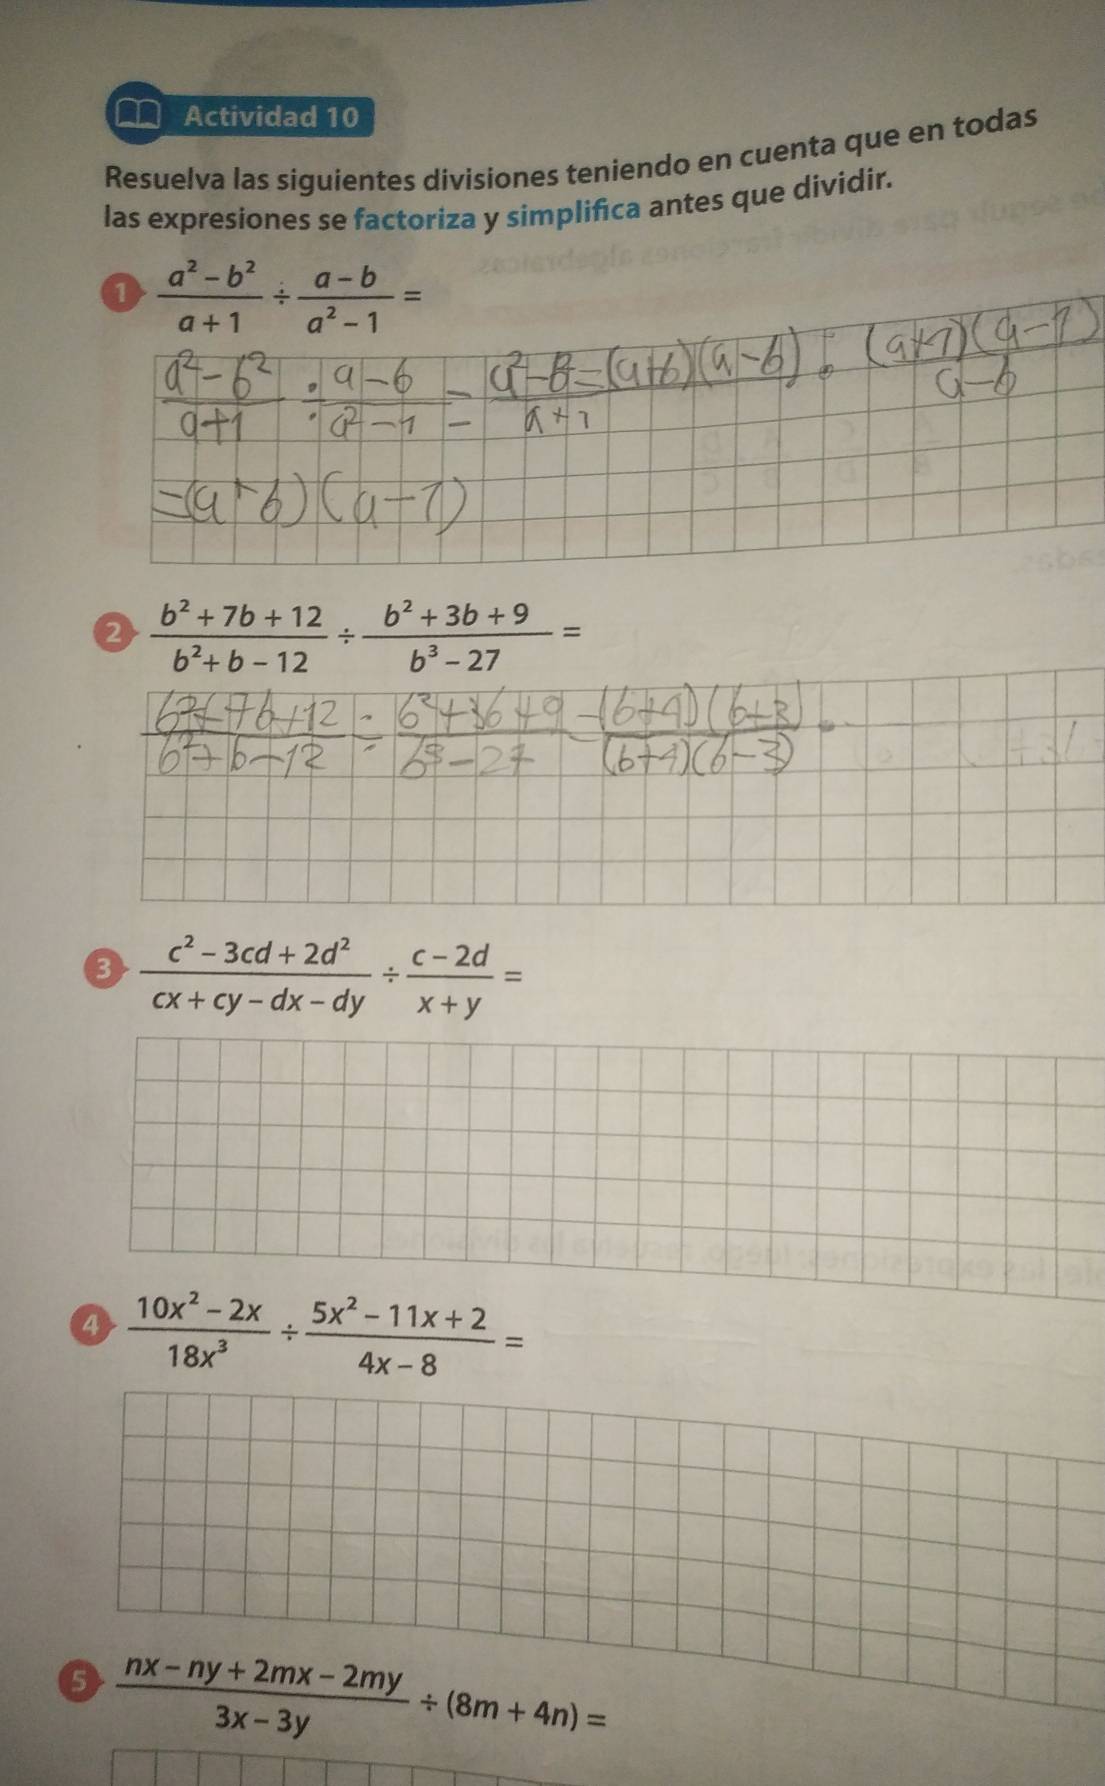 Actividad 10
Resuelva las siguientes divisiones teniendo en cuenta que en todas
las expresiones se factoriza y simplifica antes que dividir.
1 (a² − b²)/(a + 1) ÷ (a − b)/(a² − 1) =
(a² − b²)/(a + 1) ÷ (a − b)/(a² − 1) = (a² − b² = (a + b)(a − b))/(a + 1) : (a + 1)(a − 1)/(a − b)
= (a + b)(a − 1)
2 (b² + 7b + 12)/(b² + b − 12) ÷ (b² + 3b + 9)/(b³ − 27) =
(b² + 7b + 12)/(b² + b − 12) ÷ (b² + 3b + 9)/(b³ − 27) = (b + 4)(b + 3)/(b + 4)(b − 3) .
3 (c² − 3cd + 2d²)/(cx + cy − dx − dy) ÷ (c − 2d)/(x + y) =
4 (10x² − 2x)/(18x³) ÷ (5x² − 11x + 2)/(4x − 8) =
5 (nx − ny + 2mx − 2my)/(3x − 3y) ÷ (8m + 4n) =